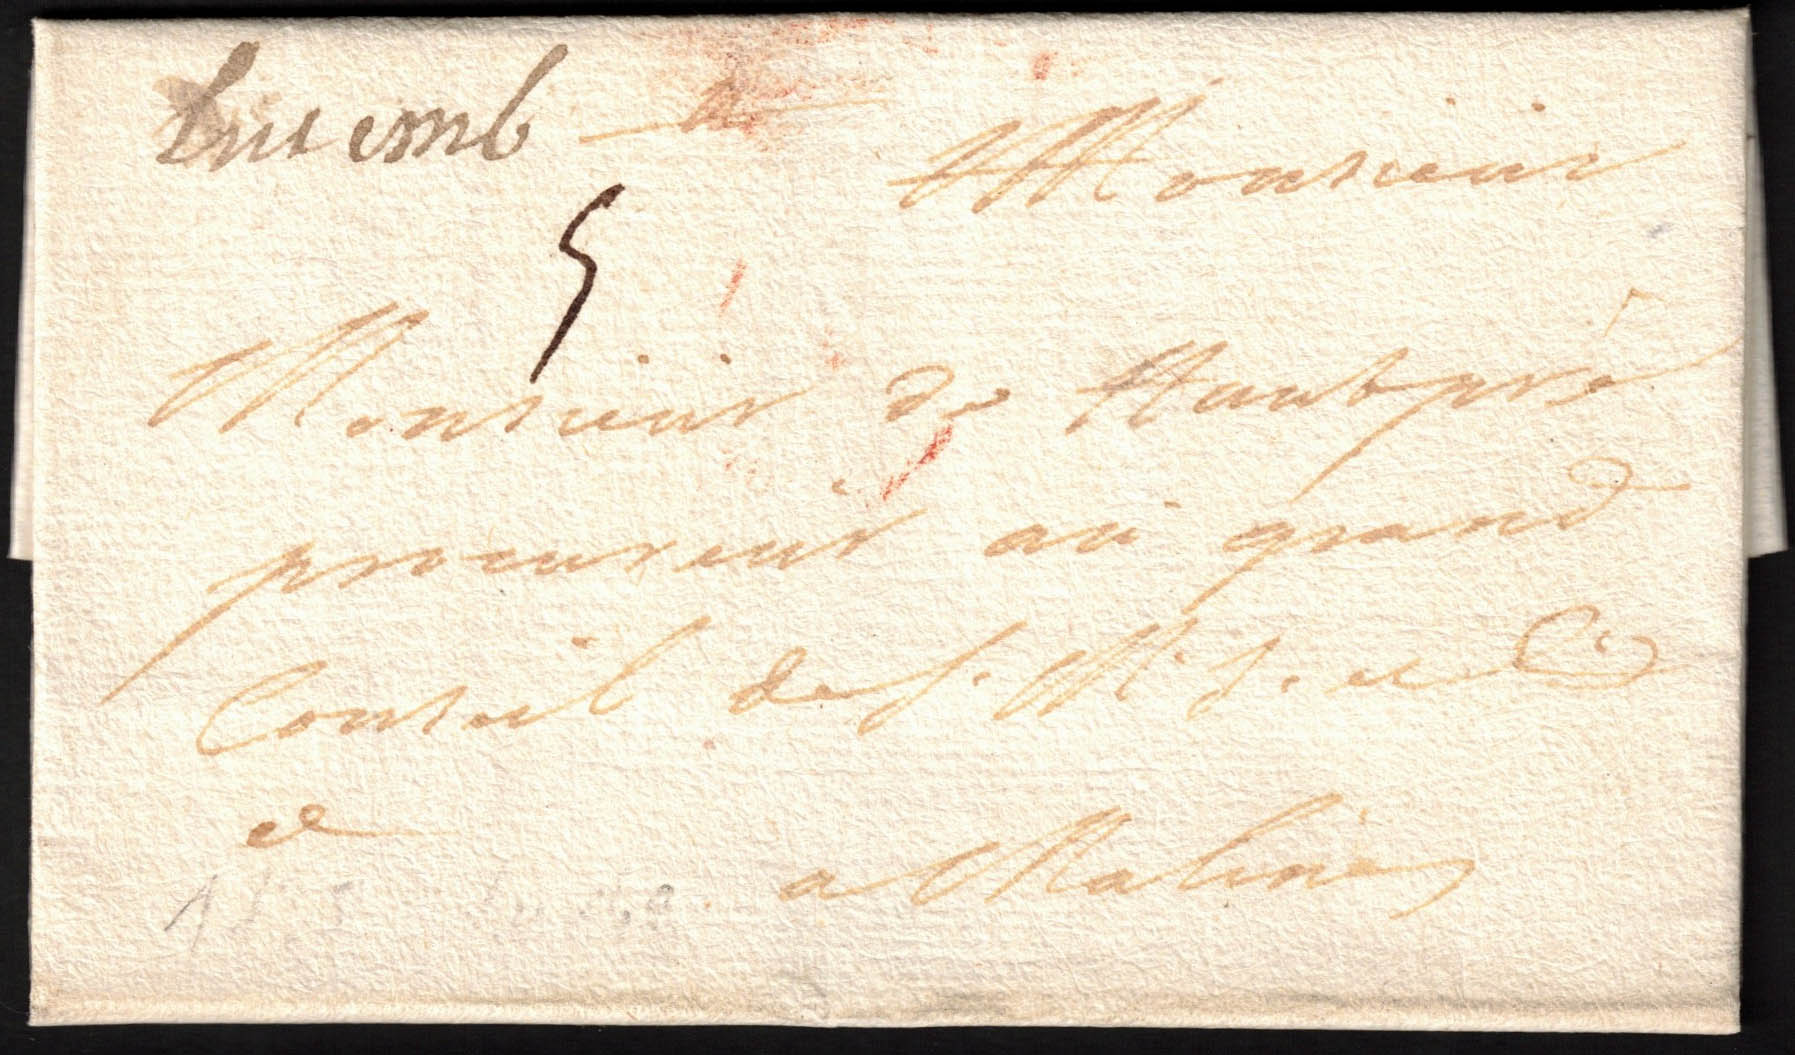 Luxemb
A Monsieur
5
Monsieur de Hautpré
procureur au grand
Conseil de S. M. I. et C.
et
a Malines